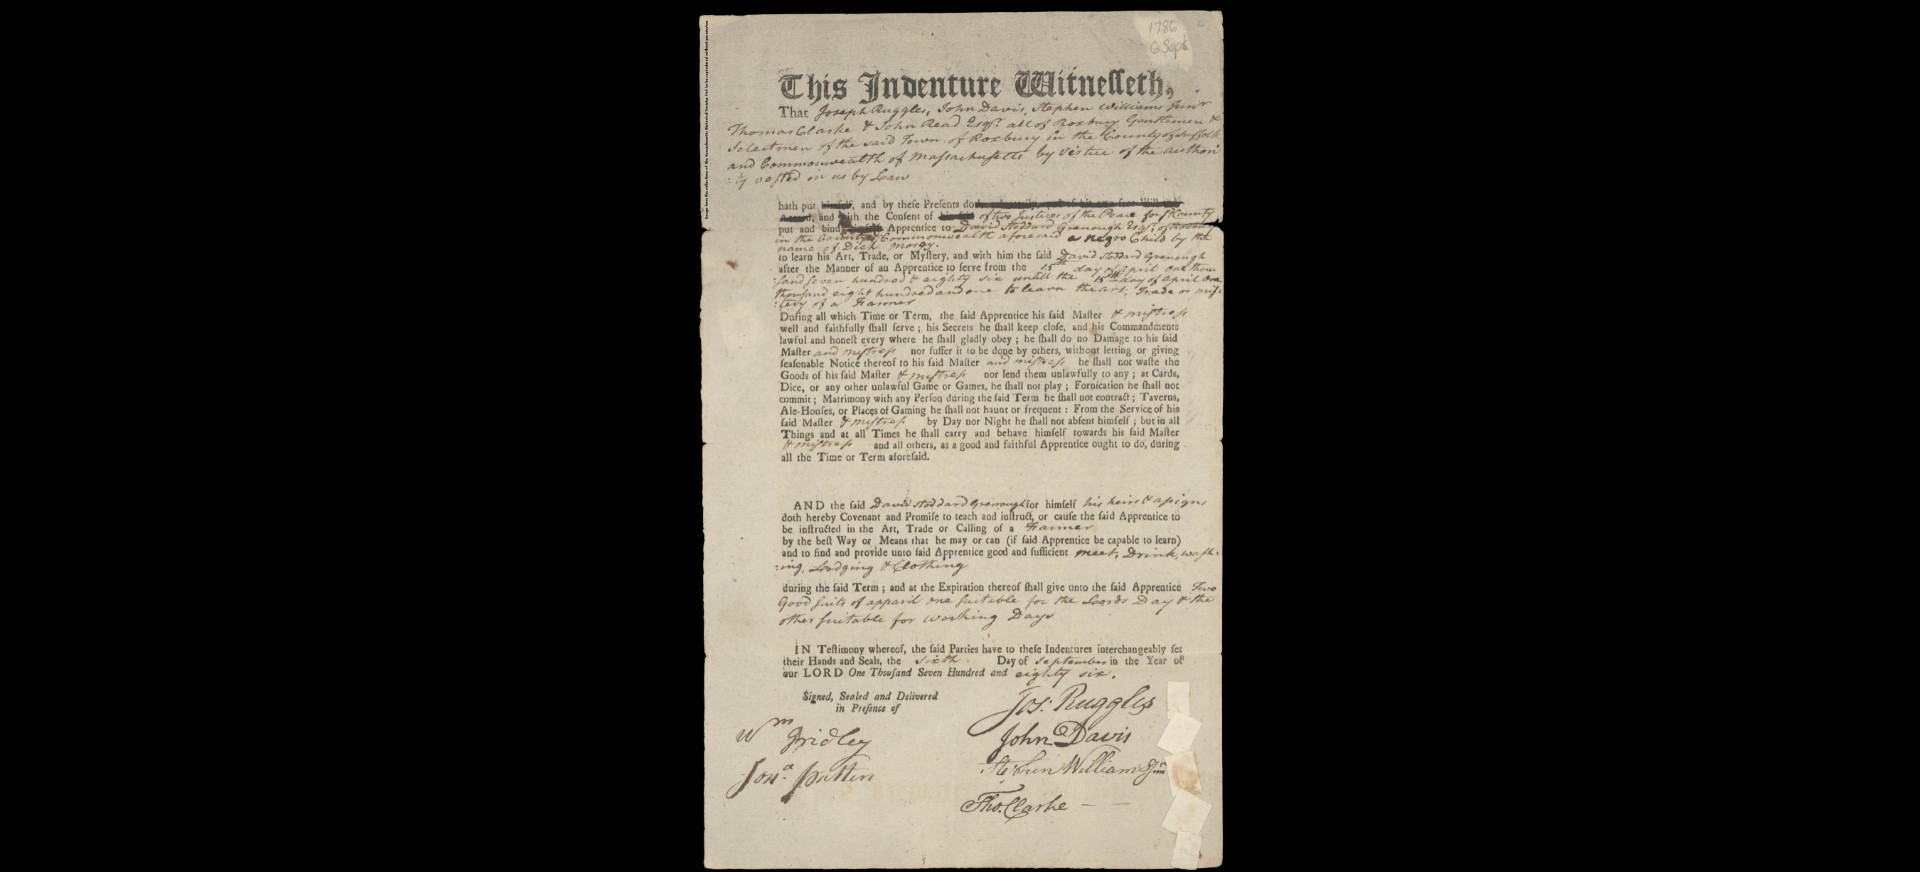 1786
6 Sept
This Indenture Witnesseth,
That Joseph Ruggles, John Davis, Stephen Williams Junr
Thomas Clarke & John Read Esqr. all of Roxbury Gentlemen &
Selectmen of the said Town of Roxbury in the County of Suffolk
and Commonwealth of Massachusetts by Virtue of the Authori
:ty vested in us by Law
hath put himself, and by these Presents doth
and with the Consent of his said of two Justices of the Peace for sd County
put and bind himself Apprentice to David Stoddard Grenough Esqr. of Roxbury
in the County & Commonwealth aforesaid a negro Child by the
name of Dick Morey.
to learn his Art, Trade, or Mystery, and with him the said David Stoddard Grenough
after the Manner of an Apprentice to serve from the 15th day of April one thou
:sand seven hundred & eighty six untill the 15th day of April one
thousand eight hundred and one to learn the art, Trade or mis
:tery of a Farmer
During all which Time or Term, the said Apprentice his said Master & mistress
well and faithfully shall serve; his Secrets he shall keep close, and his Commandments
lawful and honest every where he shall gladly obey; he shall do no Damage to his said
Master and mistress nor suffer it to be done by others, without letting or giving
seasonable Notice thereof to his said Master and mistress he shall not waste the
Goods of his said Master & mistress nor lend them unlawfully to any; at Cards,
Dice, or any other unlawful Game or Games, he shall not play; Fornication he shall not
commit; Matrimony with any Person during the said Term he shall not contract; Taverns,
Ale-Houses, or Places of Gaming he shall not haunt or frequent: From the Service of his
said Master & mistress by Day nor Night he shall not absent himself; but in all
Things and at all Times he shall carry and behave himself towards his said Master
& mistress and all others, as a good and faithful Apprentice ought to do, during
all the Time or Term aforesaid.
AND the said David Stoddard Grenough for himself his heirs & assigns
doth hereby Covenant and Promise to teach and instruct, or cause the said Apprentice to
be instructed in the Art, Trade or Calling of a Farmer
by the best Way or Means that he may or can (if said Apprentice be capable to learn)
and to find and provide unto said Apprentice good and sufficient meet, Drink, wash
:ing, Lodging & Clothing
during the said Term; and at the Expiration thereof shall give unto the said Apprentice Two
Good suits of apparil one suitable for the Lords Day & the
other suitable for working Days
IN Testimony whereof, the said Parties have to these Indentures interchangeably set
their Hands and Seals, the sixth Day of September in the Year of
our LORD One Thousand Seven Hundred and eighty six.
Signed, Sealed and Delivered
in Presence of
Jos: Ruggles
Wm Fridley
John Davis
Jona. Patten
Stephen Williams Jun
Tho. Clarke